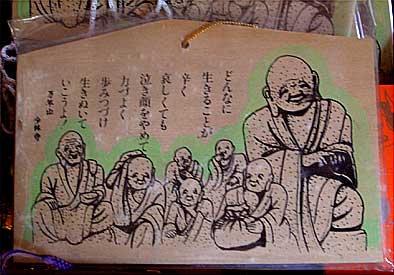 どんなに
生きることが
辛く
哀しくても
泣き顔をやめて
力づよく
歩みつづけ
生きぬいて
いこうよ！
少林寺